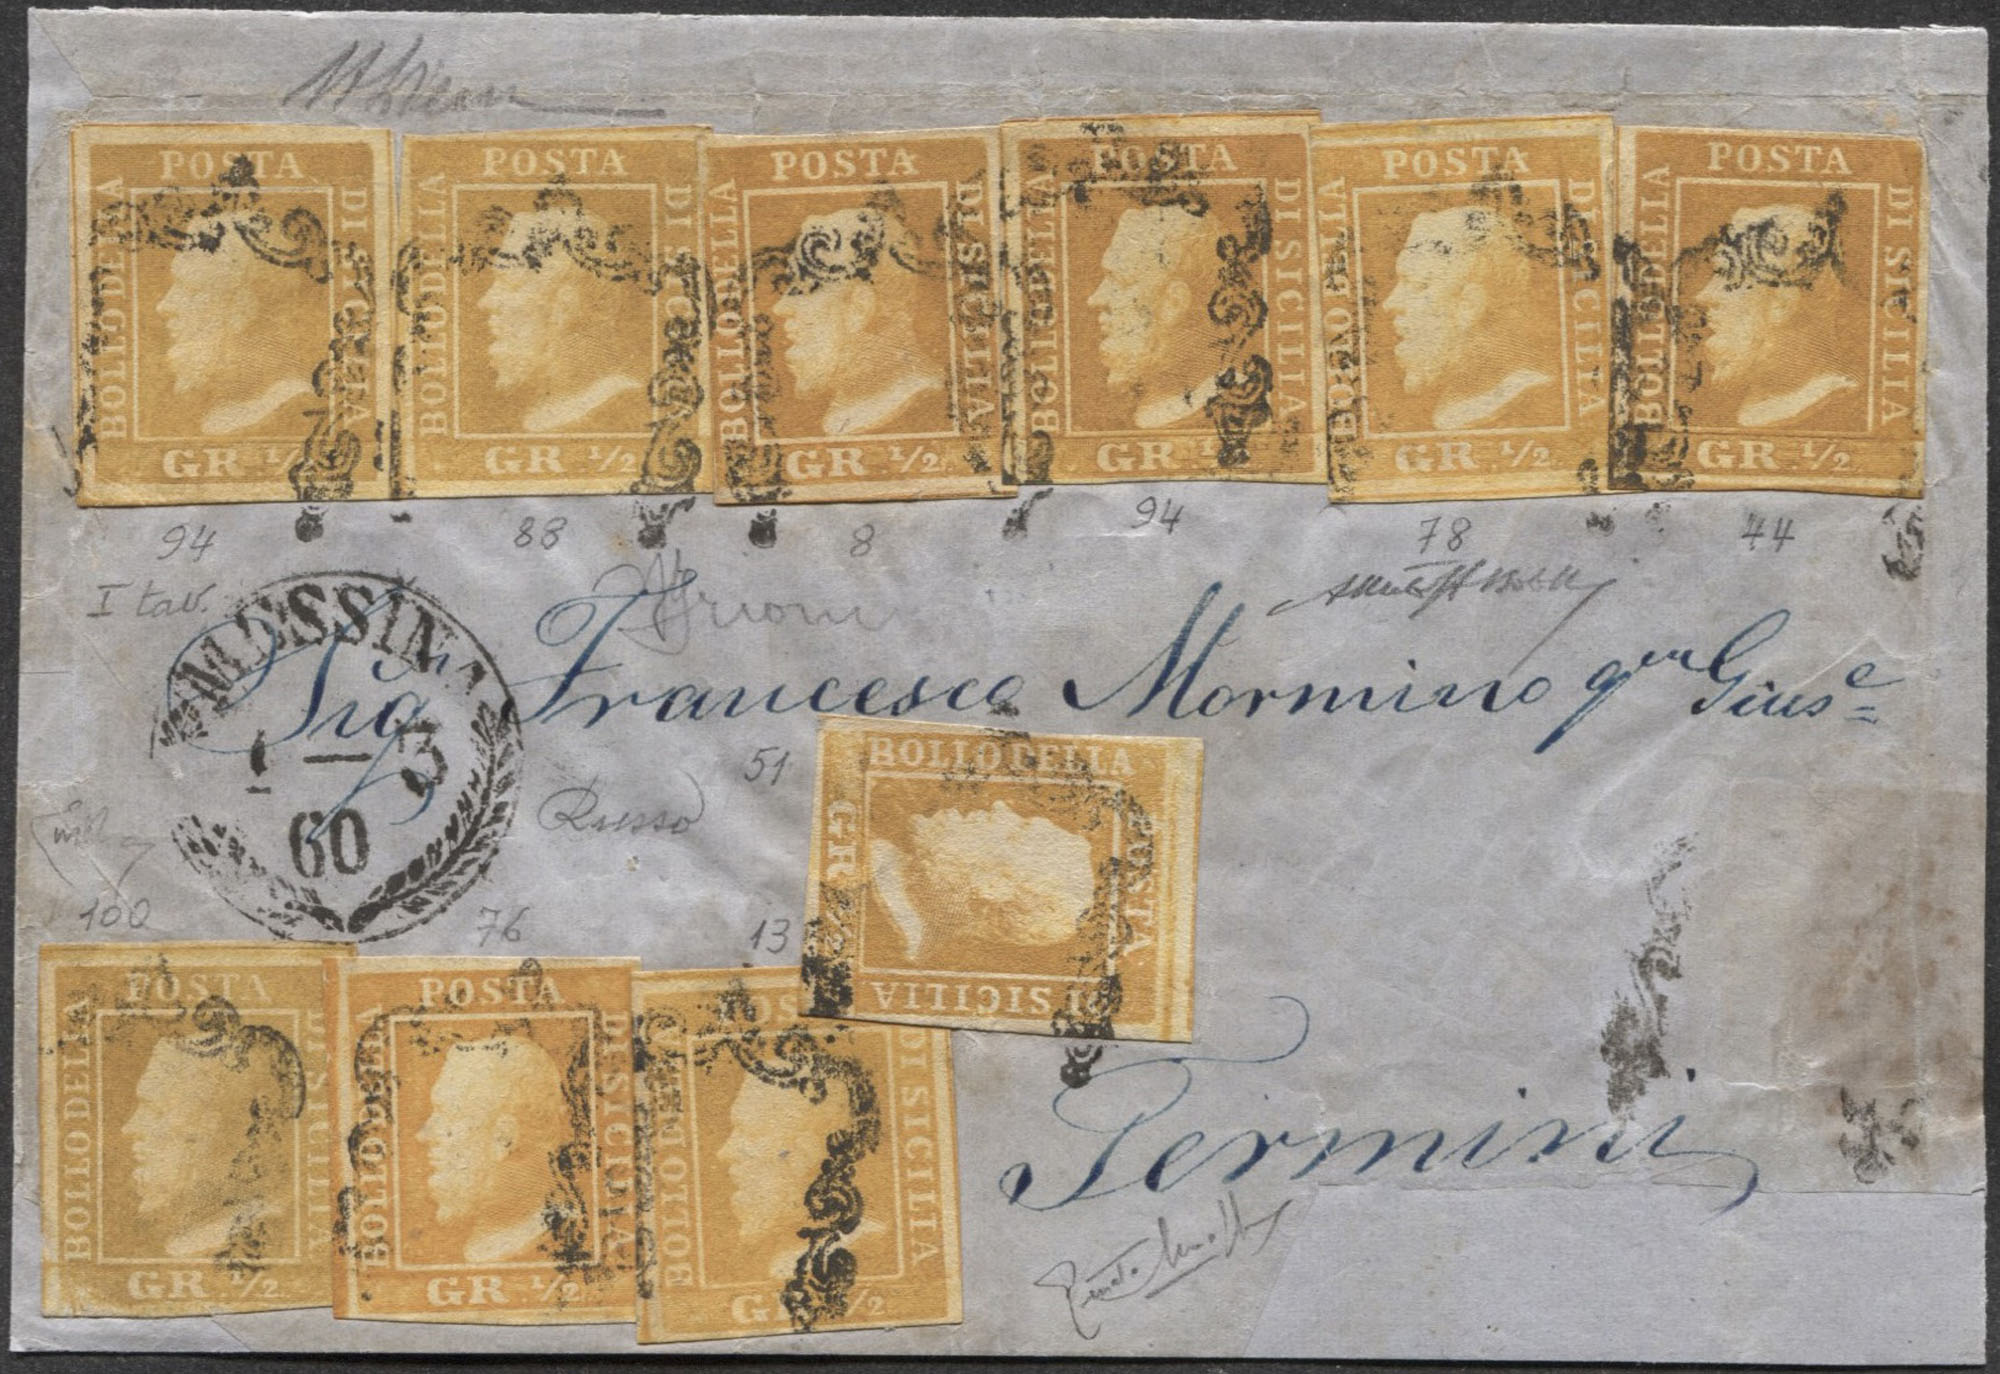 POSTA
BOLLO DELLA
DI SICILIA
GR. 1/2.
POSTA
BOLLO DELLA
DI SICILIA
GR. 1/2.
POSTA
BOLLO DELLA
DI SICILIA
GR. 1/2.
POSTA
BOLLO DELLA
DI SICILIA
GR. 1/2.
POSTA
BOLLO DELLA
DI SICILIA
GR. 1/2.
POSTA
BOLLO DELLA
DI SICILIA
GR. 1/2.
94 88 8 94 78 44
I tav.
MESSINA
1 — 3
60
Sig Francesco Mormino qm Gius.e
51
BOLLO DELLA
GR. 1/2
POSTA
DI SICILIA
Russo
100 76 13
POSTA
BOLLO DELLA
DI SICILIA
GR. 1/2.
POSTA
BOLLO DELLA
DI SICILIA
GR. 1/2.
POSTA
BOLLO DELLA
DI SICILIA
GR. 1/2
Termini